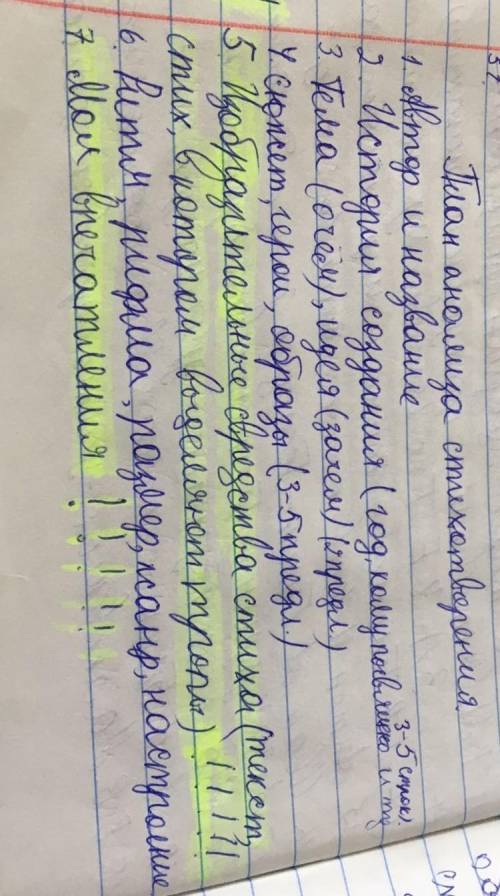 План анализа стихотворения.
1. Автор и название
3-5 строк).
2. История создания (год, кому посвящено и тд
3. Тема (о чём), идея (зачем) (2 предл.)
4. сюжет, герои, образы (3-5 предл.)
5. Изобразительные средства стиха (текст,
стих, в котором выделяют тропы) !!!!!
6. Ритм, рифма, размер, жанр, настроение
7. Мои впечатления !!!!!